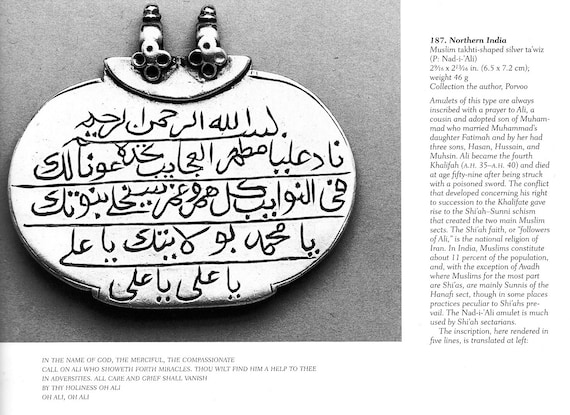 بسم الله الرحمن الرحيم
ناد عليا مظهر العجايب تجده عونا لك
في النوايب كل هم وغم سينجلي بنبوتك
يا محمد بولايتك يا علي
يا علي يا علي
IN THE NAME OF GOD, THE MERCIFUL, THE COMPASSIONATE
CALL ON ALI WHO SHOWETH FORTH MIRACLES. THOU WILT FIND HIM A HELP TO THEE
IN ADVERSITIES. ALL CARE AND GRIEF SHALL VANISH
BY THY HOLINESS OH ALI
OH ALI, OH ALI
187. Northern India
Muslim takhti-shaped silver ta'wiz
(P: Nad-i-'Ali)
2⁹⁄₁₆ x 2¹³⁄₁₆ in. (6.5 x 7.2 cm);
weight 46 g
Collection the author, Porvoo
Amulets of this type are always
inscribed with a prayer to Ali, a
cousin and adopted son of Muham-
mad who married Muhammad's
daughter Fatimah and by her had
three sons, Hasan, Hussain, and
Muhsin. Ali became the fourth
Khalifah (A.H. 35–A.H. 40) and died
at age fifty-nine after being struck
with a poisoned sword. The conflict
that developed concerning his right
to succession to the Khalifate gave
rise to the Shi'ah–Sunni schism
that created the two main Muslim
sects. The Shi'ah faith, or "followers
of Ali," is the national religion of
Iran. In India, Muslims constitute
about 11 percent of the population,
and, with the exception of Avadh
where Muslims for the most part
are Shi'as, are mainly Sunnis of the
Hanafi sect, though in some places
practices peculiar to Shi'ahs pre-
vail. The Nad-i-'Ali amulet is much
used by Shi'ah sectarians.
The inscription, here rendered in
five lines, is translated at left: